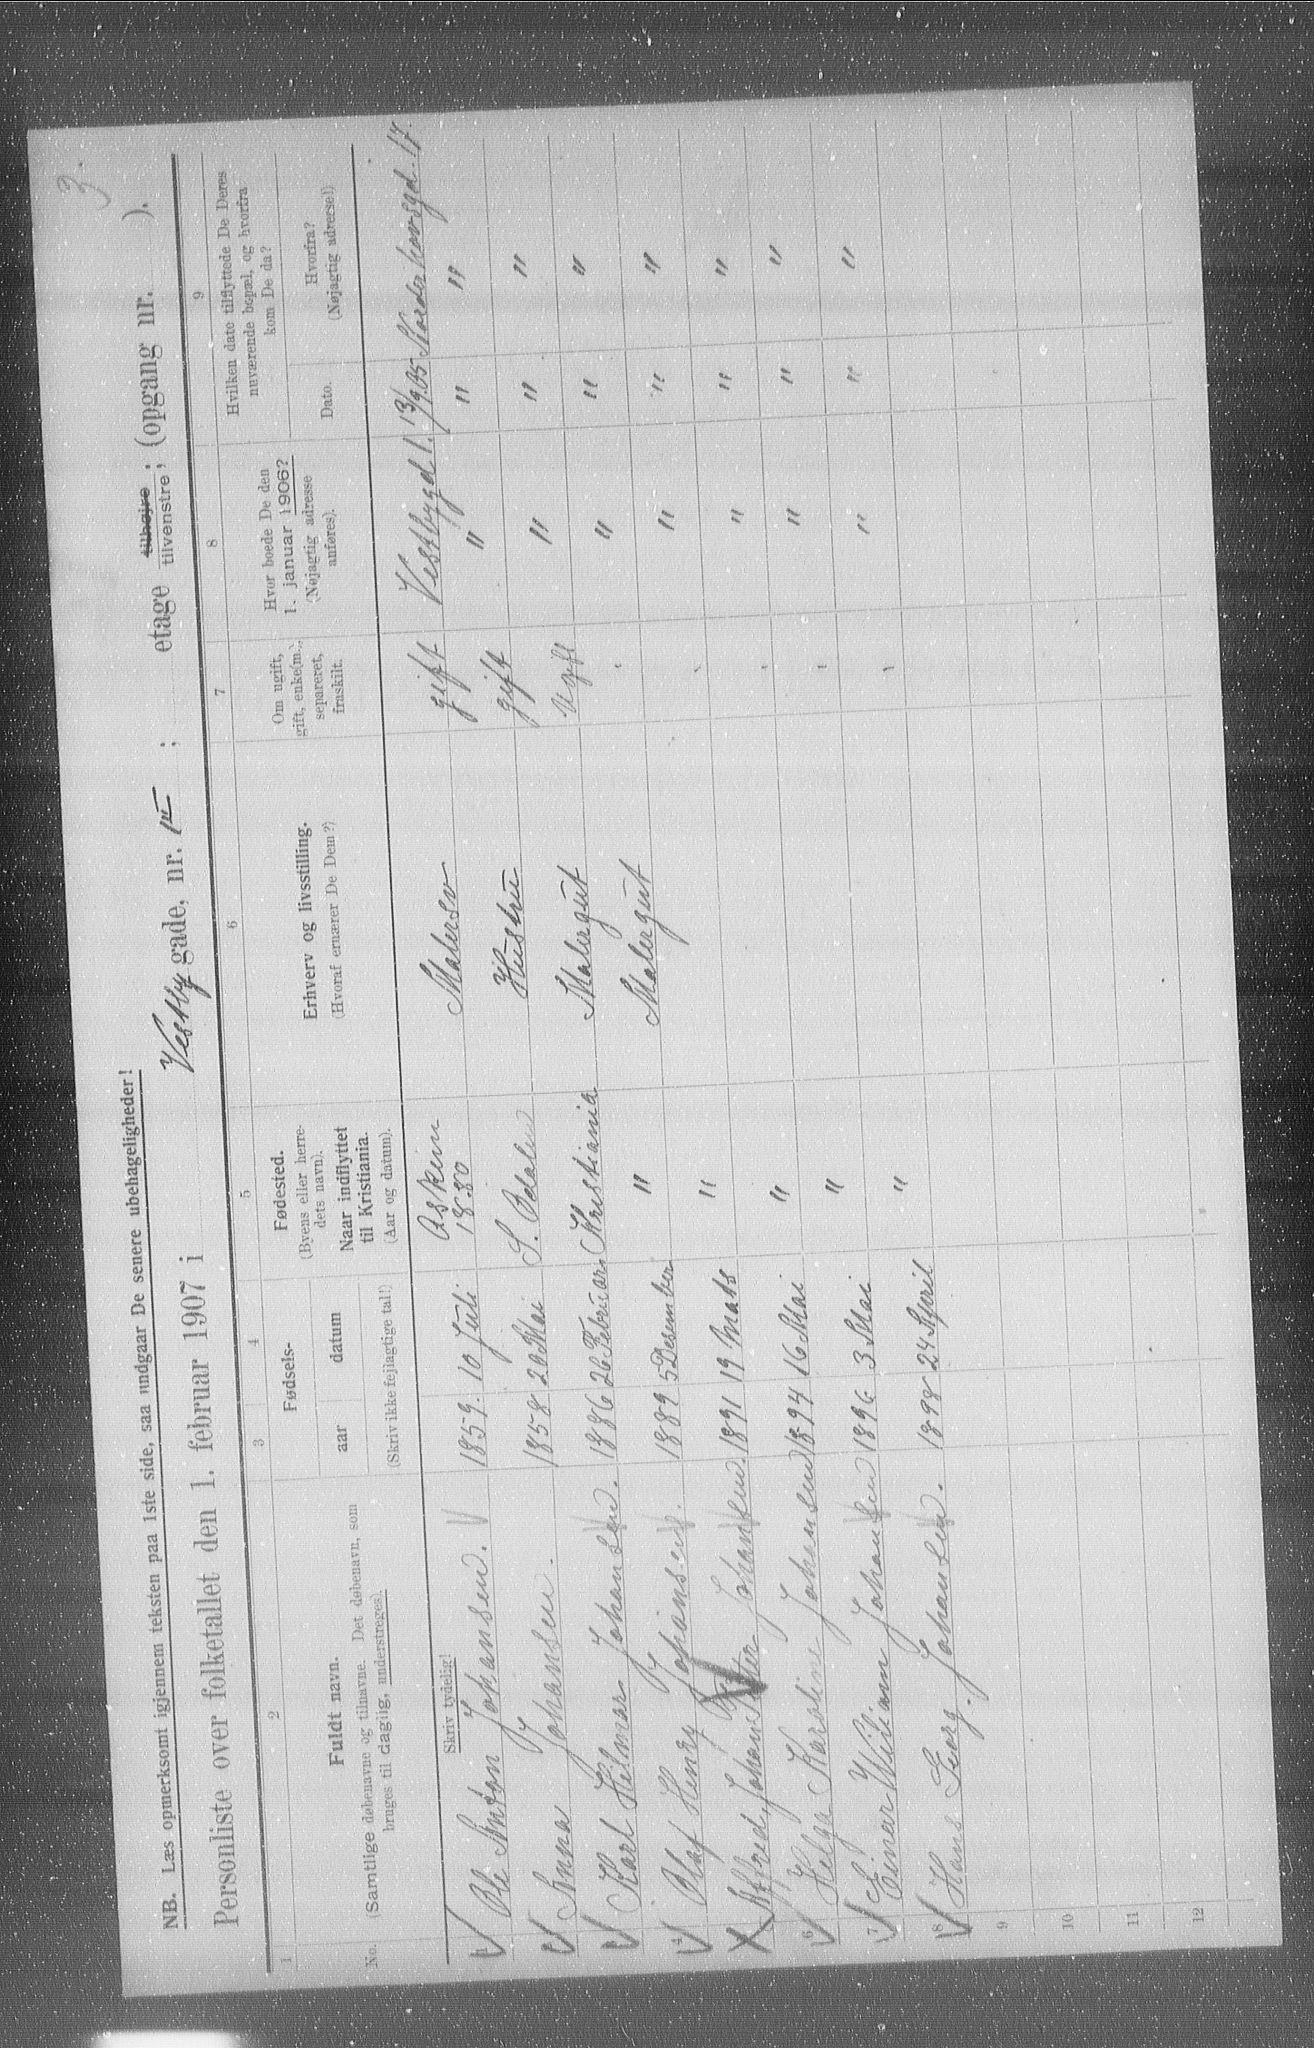 3.
NB. Læs opmerksomt igjennem teksten paa 1ste side, saa undgaar De senere ubehageligheder!
Personliste over folketallet den 1. februar 1907 i Vestby gade, nr. 1 ; etage tilhøjre tilvenstre; (opgang nr. ).
1 2 3 4 5 6 7 8 9
No. Fuldt navn. (Samtlige døbenavne og tilnavne. Det døbenavn, som bruges til daglig, understreges). Fødsels- aar datum (Skriv ikke fejlagtige tal!) Fødested. (Byens eller herredets navn). Naar indflyttet til Kristiania. (Aar og datum). Erhverv og livsstilling. (Hvoraf ernærer De Dem?) Om ugift, gift, enke(m.), separeret, fraskilt. Hvor boede De den 1. januar 1906? (Nøjagtig adresse anføres). Hvilken date tilflyttede De Deres nuværende bopæl, og hvorfra kom De da? Dato. Hvorfra? (Nøjagtig adresse!)
Skriv tydelig!
1 Ole Anton Johansen. 1859. 10 Juli. Askim 1880 Malersv gift Vestbygd 1. 13/9.05 Norderhovsgd. 17.
Anna Johansen. 1858 20 Mai S. Odalen Hustru gift " " "
Karl Hilmar Johansen. 1886 26 Februar. Kristiania Malergut ugift " " "
4 Olaf Henry Johansen. 1889 5 Desember " Malergut " " " "
Alfred Johan Johansen. 1891 19 Mats " " " " "
6 Helga Karoline Johansen 1894 16 Mai " " " " "
7 Einar Wilhelm Johansen 1896 3 Mai " " " " "
8 Hans Georg. Johansen. 1898 24 April " " " " "
9
10
11
12